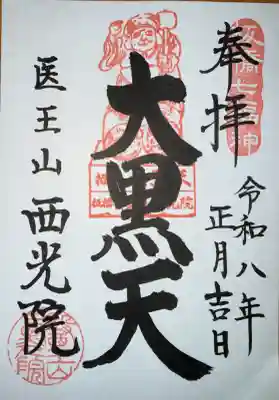 奉拝
令和八年
正月吉日
大黒天
医王山
西光院